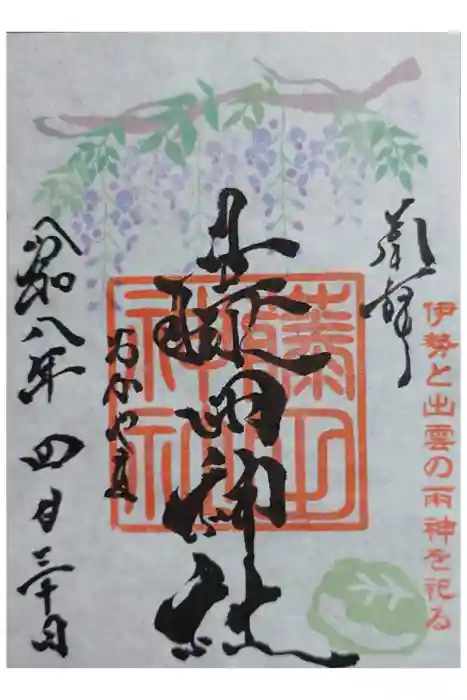 奉拝
伊勢と出雲の両神を祀る
藤田神社
藤田神社
おかやま
令和八年 四月三十日